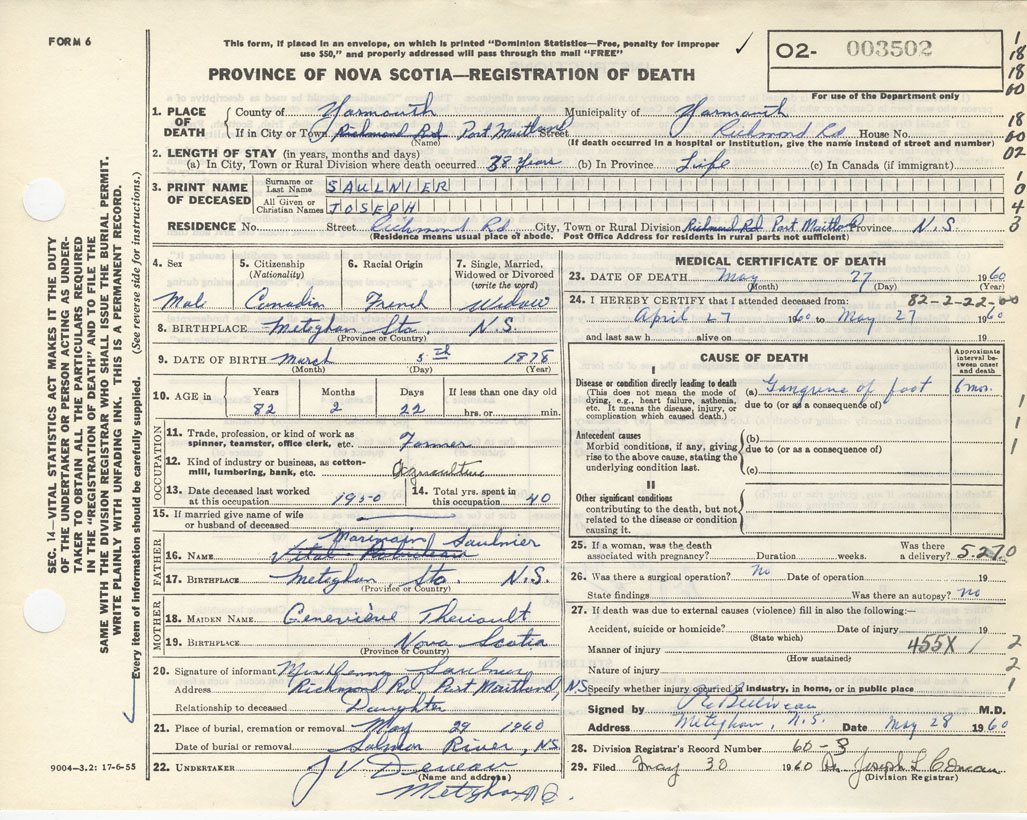 FORM 6
This form, if placed in an envelope, on which is printed "Dominion Statistics—Free, penalty for improper
use $50," and properly addressed will pass through the mail "FREE"
✓
O2- 003502
For use of the Department only
PROVINCE OF NOVA SCOTIA—REGISTRATION OF DEATH
1. PLACE OF DEATH { County of Yarmouth Municipality of Yarmouth
If in City or Town Richmond Rd Port Maitland Street Richmond Rd House No.
(Name) (If death occurred in a hospital or Institution, give the name instead of street and number)
2. LENGTH OF STAY (in years, months and days)
(a) In City, Town or Rural Division where death occurred 38 years (b) In Province Life (c) In Canada (if immigrant)
3. PRINT NAME OF DECEASED { Surname or Last Name SAULNIER
All Given or Christian Names JOSEPH
RESIDENCE No. Street Richmond Rd City, Town or Rural Division Richmond Rd Port Maitland Province N.S.
(Residence means usual place of abode. Post Office Address for residents in rural parts not sufficient)
4. Sex 5. Citizenship (Nationality) 6. Racial Origin 7. Single, Married, Widowed or Divorced (write the word)
Mal Canadian French Widow
8. BIRTHPLACE Meteghan Sta. N.S.
(Province or Country)
9. DATE OF BIRTH March 5th 1878
(Month) (Day) (Year)
10. AGE in Years Months Days If less than one day old
82 2 22 hrs. or min.
OCCUPATION
11. Trade, profession, or kind of work as spinner, teamster, office clerk, etc. Farmer
12. Kind of industry or business, as cotton-mill, lumbering, bank, etc. Agriculture
13. Date deceased last worked at this occupation 1950 14. Total yrs. spent in this occupation 40
15. If married give name of wife or husband of deceased
FATHER
16. NAME Saulnier
17. BIRTHPLACE Meteghan Sta. N.S.
(Province or Country)
MOTHER
18. MAIDEN NAME Geneviève Theriault
19. BIRTHPLACE Nova Scotia
(Province or Country)
20. Signature of informant
Address Richmond Rd. Port Maitland, N.S.
Relationship to deceased Daughter
21. Place of burial, cremation or removal May 29 1960
Date of burial or removal Salmon River, N.S.
22. UNDERTAKER J V Deveau
(Name and address)
Meteghan N.S.
MEDICAL CERTIFICATE OF DEATH
23. DATE OF DEATH May 27 1960
(Month) (Day) (Year)
24. I HEREBY CERTIFY that I attended deceased from: 82-2-22-00
April 27 1960 to May 27 1960
and last saw h alive on 19
CAUSE OF DEATH
Approximate interval between onset and death
I
Disease or condition directly leading to death
(This does not mean the mode of dying, e.g., heart failure, asthenia, etc. It means the disease, injury, or complication which caused death.)
(a) Gangrene of foot 6 mos.
due to (or as a consequence of)
Antecedent causes
Morbid conditions, if any, giving rise to the above cause, stating the underlying condition last.
(b)
due to (or as a consequence of)
(c)
II
Other significant conditions
contributing to the death, but not related to the disease or condition causing it.
25. If a woman, was the death associated with pregnancy? Duration weeks. Was there a delivery? 5.270
26. Was there a surgical operation? no Date of operation 19
State findings Was there an autopsy? no
27. If death was due to external causes (violence) fill in also the following:—
Accident, suicide or homicide? Date of injury 19
(State which)
Manner of injury 455X
(How sustained)
Nature of injury
Specify whether injury occurred in industry, in home, or in public place
Signed by P E Belliveau M.D.
Address Meteghan, N.S. Date May 28 1960
28. Division Registrar's Record Number 60-8
29. Filed May 30 1960 Joseph L Comeau
(Division Registrar)
SEC. 14—VITAL STATISTICS ACT MAKES IT THE DUTY
OF THE UNDERTAKER OR PERSON ACTING AS UNDER-
TAKER TO OBTAIN ALL THE PARTICULARS REQUIRED
IN THE "REGISTRATION OF DEATH" AND TO FILE THE
SAME WITH THE DIVISION REGISTRAR WHO SHALL ISSUE THE BURIAL PERMIT.
WRITE PLAINLY WITH UNFADING INK. THIS IS A PERMANENT RECORD.
Every item of information should be carefully supplied. (See reverse side for instructions.)
9004—3.2: 17-6-55
1
18
18
60
18
60
02
1
0
4
3
1
1
1
1 2
2
1